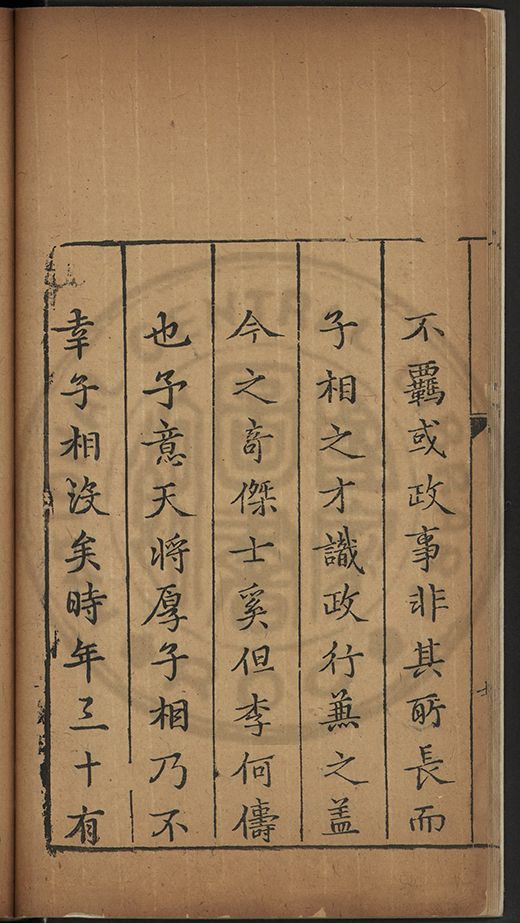 不羈或政事非其所長而
子相之才識政行兼之盖
今之竒傑士奚但李何儔
也予意天将厚子相乃不
幸子相沒矣時年三十有